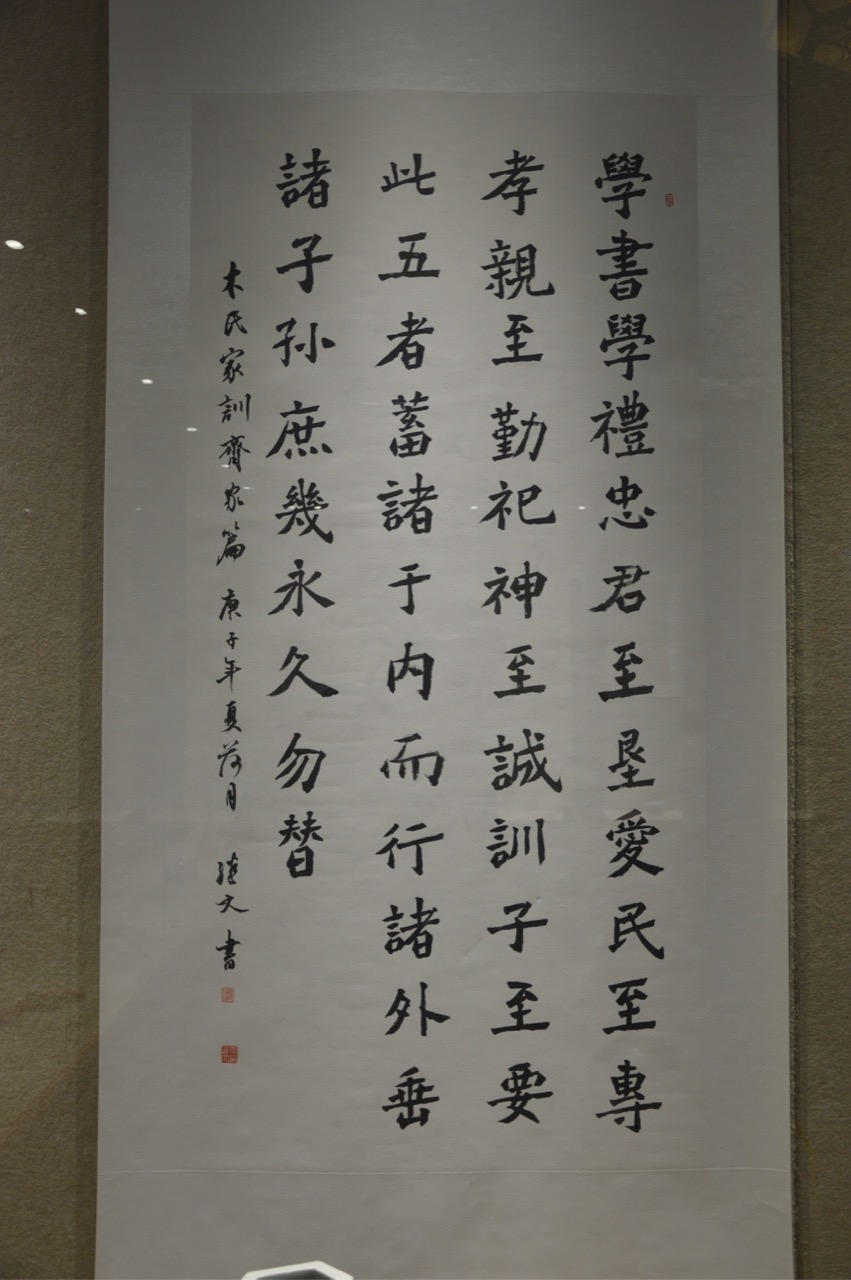 學書學禮忠君至垦愛民至專
孝親至勤祀神至誠訓子至要
此五者蓄諸于内而行諸外垂
諸子孫庶幾永久勿替
木氏家訓齊家篇 庚子年夏荷月 文書